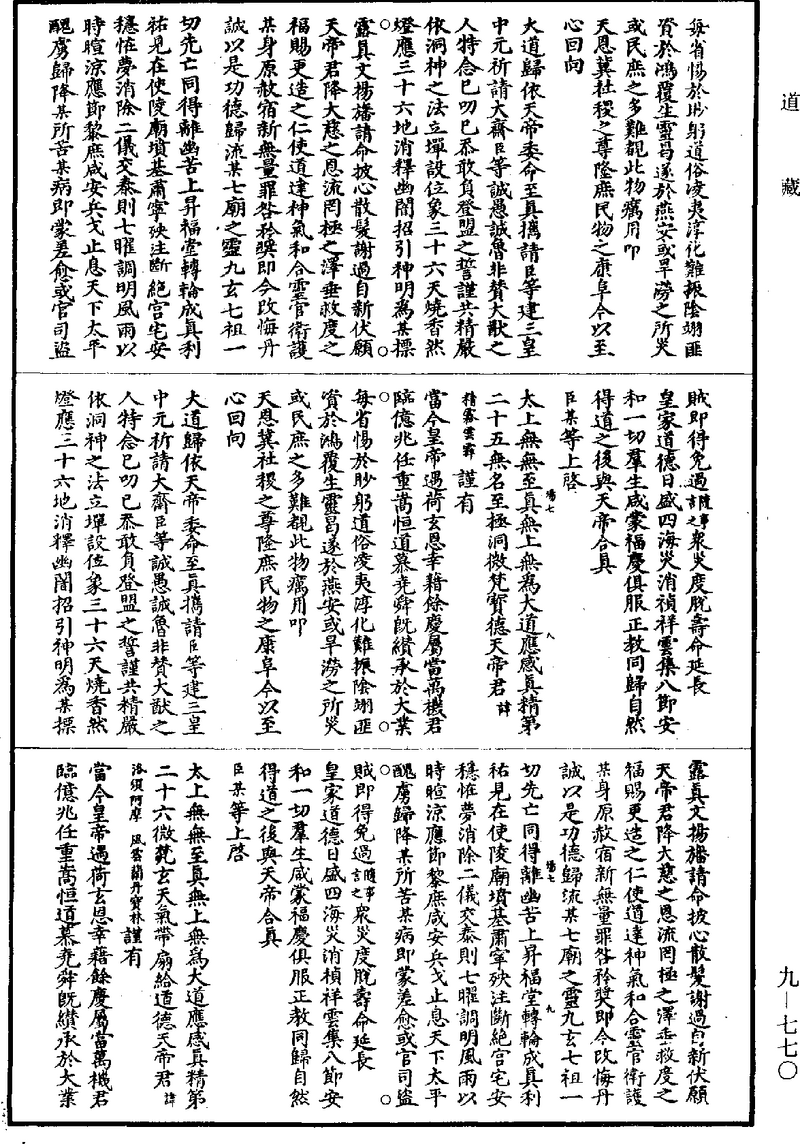 道藏
每省惕於眇躬道俗淩夷淳化難振陰翊匪
資於鴻覆生靈曷遂於燕安或旱澇之所災
或民庶之多難覩此物癘用叩
天恩冀社稷之尊隆庶民物之康阜今以至
心回向
大道歸依天帝委命至真擕請臣等建三皇
中元祈請大齋臣等誠愚誠魯非贊大猷之
人特念已叨已忝敢負登盟之誓謹共精嚴
依洞神之法立壇設位象三十六天燒香然
燈應三十六地消釋幽闇招引神明為某標
露真文揚旛請命披心散髮謝過自新伏願
天帝君降大慈之恩流罔極之澤垂救度之
福賜更造之仁使道達神氣和合靈官衛護
某身原赦宿新無量罪咎矜獎即今改悔丹
誠以是功德歸流某七廟之靈九玄七祖一
切先亡同得離幽苦上昇福堂轉輪成真利
祐見在使陵廟墳基肅寧殃注斷絕宮宅安
穩恠夢消除二儀交泰則七曜調明風雨以
時暄涼應節黎庶咸安兵戈止息天下太平
醜虜歸降某所苦某病即蒙差愈或官司盜
賊即得免過隨事言之衆災度脫壽命延長
皇家道德日盛四海災消禎祥雲集八節安
和一切羣生咸蒙福慶俱服正教同歸自然
得道之後與天帝合真
臣某等上啓
太上無無至真無上無為大道應感真精第
二十五無名至極洞微梵寶德天帝君諱
精 雲霽 謹有
當今皇帝遇荷玄恩幸藉餘慶屬當萬機君
臨億兆任重嵩恒道慕堯舜既纘承於大業
每省惕於眇躬道俗淩夷淳化難振陰翊匪
資於鴻覆生靈曷遂於燕安或旱澇之所災
或民庶之多難覩此物癘用叩
天恩冀社稷之尊隆庶民物之康阜今以至
心回向
大道歸依天帝委命至真擕請臣等建三皇
中元祈請大齋臣等誠愚誠魯非贊大猷之
人特念已叨已忝敢負登盟之誓謹共精嚴
依洞神之法立壇設位象三十六天燒香然
燈應三十六地消釋幽闇招引神明為某標
露真文揚旛請命披心散髮謝過自新伏願
天帝君降大慈之恩流罔極之澤垂救度之
福賜更造之仁使道達神氣和合靈官衛護
某身原赦宿新無量罪咎矜獎即今改悔丹
誠以是功德歸流某七廟之靈九玄七祖一
切先亡同得離幽苦上昇福堂轉輪成真利
祐見在使陵廟墳基肅寧殃注斷絕宮宅安
穩恠夢消除二儀交泰則七曜調明風雨以
時暄涼應節黎庶咸安兵戈止息天下太平
醜虜歸降某所苦某病即蒙差愈或官司盜
賊即得免過隨事言之衆災度脫壽命延長
皇家道德日盛四海災消禎祥雲集八節安
和一切羣生咸蒙福慶俱服正教同歸自然
得道之後與天帝合真
臣某等上啓
太上無無至真無上無為大道應感真精第
二十六微梵玄天氣帶扇給道德天帝君諱
洛須阿摩 風雲蘭丹寶林 謹有
當今皇帝遇荷玄恩幸藉餘慶屬當萬機君
臨億兆任重嵩恒道慕堯舜既纘承於大業
九—七七〇